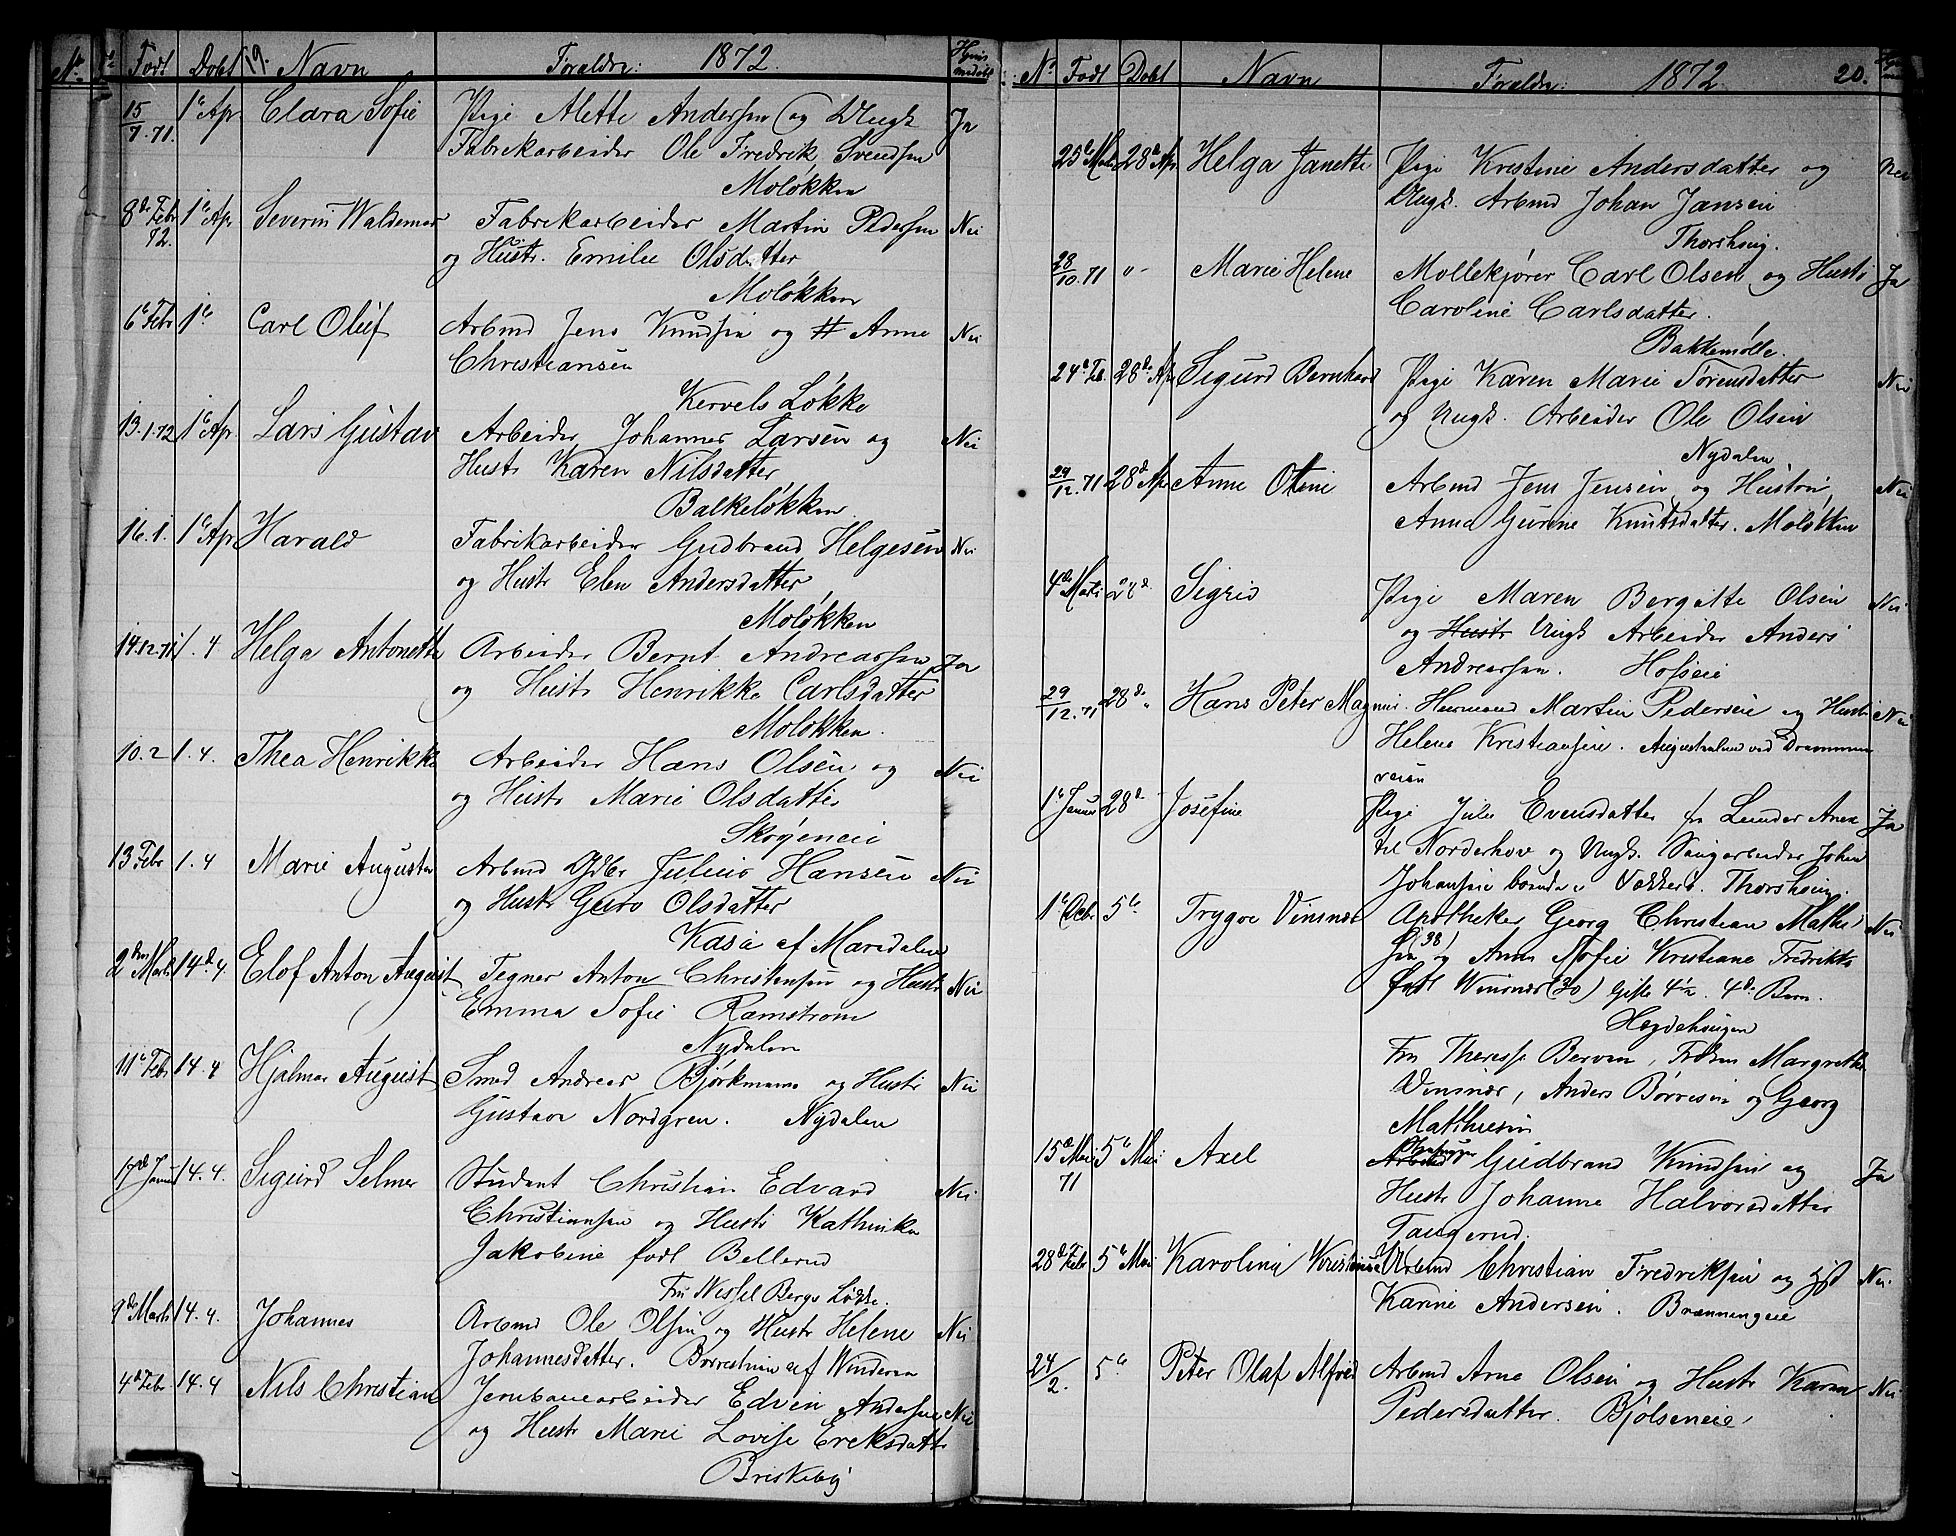 Født Døbt 19. Navn Forældre: 1872.
15/7.71. 1e Apr Clara Sofie Pige Alette Andersen og Ungk. Ja
Fabrikarbeider Ole Fredrik Svendsen
Moløkken
8de Febr 72. 1e Apr Severin Waldemar Fabrikarbeider Martin Pedersen Nei
og Hustr. Emilie Olsdatter
Moløkken
6e Febr 1e Carl Oluf Arbmd Jens Knudsen og H Anne Nei
Christiansen
Kervels Løkke
13.1.72 1e Apr Lars Gustav Arbeider Johannes Larsen og Nei
Hustr Karen Nilsdatter
Balkeløkken
16.1. 1e Apr Harald Fabrikarbeider Gudbrand Helgesen Nei
og Hustr Elen Andersdatter
Moløkken
14.12.71 1.4 Helga Antonette Arbeider Bernt Andreassen Ja
og Hustr Henrikke Carlsdatter
Moløkken.
10.2 1.4. Thea Henrikke Arbeider Hans Olsen og Nei
og Hustr Marie Olsdatter
Skøieneie
13 Febr 1.4 Marie Augusta Arbmd Julius Hansen Nei
og Hustr Guro Olsdatter
Kasa af Maridalen
2den Marts 14d.4. Elof Anton August Tegner Anton Christensen og Hustr Nei
Emma Sofie Ramstrøm
Nydalen
11e Febr 14.4 Hjalmar August Smed Andreas Bjørkmann og Hustr Nei
Gustava Nordgren. Nydalen
17d Januar 14.4. Sigurd Selmer Student Christian Edvard Nei
Christiansen og Hustr Kathinka
Jakobine født Bellerud
Fru Wessel Bergs Løkke.
9de Marts 14.4. Johannes Arbmd Ole Olsen og Hustr Helene Nei
Johannesdatter. af Winderen
4d Febr 14.4 Nils Christian Jernbanearbeider Edvin Andersen Nei
og Hustr Marie Lovise Ereksdatt
Briskeby
No Født Døbt Navn Forældre: 1872. 20.
25e Marts 28d Apr Helga Janette Pige Kristine Andersdatter og Nei
Ungk. Arbmd Johan Jansen
Thorshoug.
28/10.71 " Marie Helene Møllekjører Carl Olsen og Hustr Ja
Caroline Carlsdatter.
Bakkemølle.
24d Feb. 28d Apr Sigurd Bernhard Pige Karen Marie Sørensdatter Nei
og Ungk. Arbeider Ole Olsen
Nydalen
29/12.71 28d Apr Anne Otine Arbmd Jens Jensen og Hustru Nei
Anne Gurine Knutsdatter. Moløkken
4de Marts 28d. Sigrid Pige Maren Bergitte Olsen Nei
og Hustr Ungk Arbeider Anders
Andreassen. Hofseie
29/12.71 28de " Hans Peter Magnus. Huusmand Martin Pedersen og Hustr Nei
Helene Kristiansen. ved Drammens
veien
1e Januar 28d Josefine Pige Julie Evensdatter fra Lunder Anex Ja
til Norderhov og Ungk. Saugarbeider Johan
Johansen boende i Vækkerø. Thorshoug.
1e Octb. 5te Trygve Vinsnes Apotheker Georg Christian Mathie Nei
sen (38) og Anne Sofie Kristiane Fredrikke
født Winsnes (30) Gifte 4 1/2. 4de Barn.
Hegdehougen
Fru Therese Berven, Frøken Margrethe
Vinsnæs, Anders Børresen og Georg
Mathiesen
15d Mai 71 5te Mai Axel Arbmd Gudbrand Knudsen og Ja
Hustr Johanne Halvorsdatter
Taugerud.
28d Febr 5te Mai Karoline Kristiane Arbmd Christian Fredriksen og Nei
Karine Andersen. Brænningeie
24/2. 5te Peter Olaf Alfred Arbmd Arne Olsen og Hustr Karen Nei
Pedersdatter. Bjølseneie.